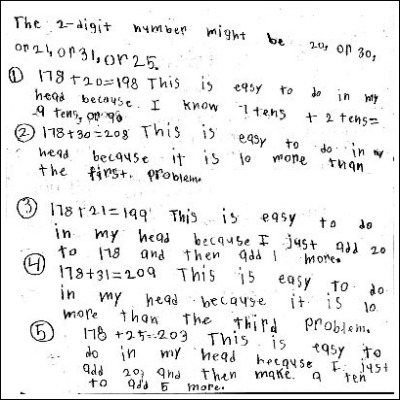 The 2-digit number might be 20, or 30,
or 21, or 31, or 25.
① 178+20=198 This is easy to do in my
head because I know 7 tens + 2 tens=
9 tens, or 90
② 178+30=208 This is easy to do in my
head because it is 10 more than
the first problem.
③ 178+21=199 This is easy to do
in my head because I just add 20
to 178 and then add 1 more.
④ 178+31=209 This is easy to do
in my head because it is 10
more than the third problem.
⑤ 178+25=203 This is easy to
do in my head because I just
add 20, and then make a ten
to add 5 more.